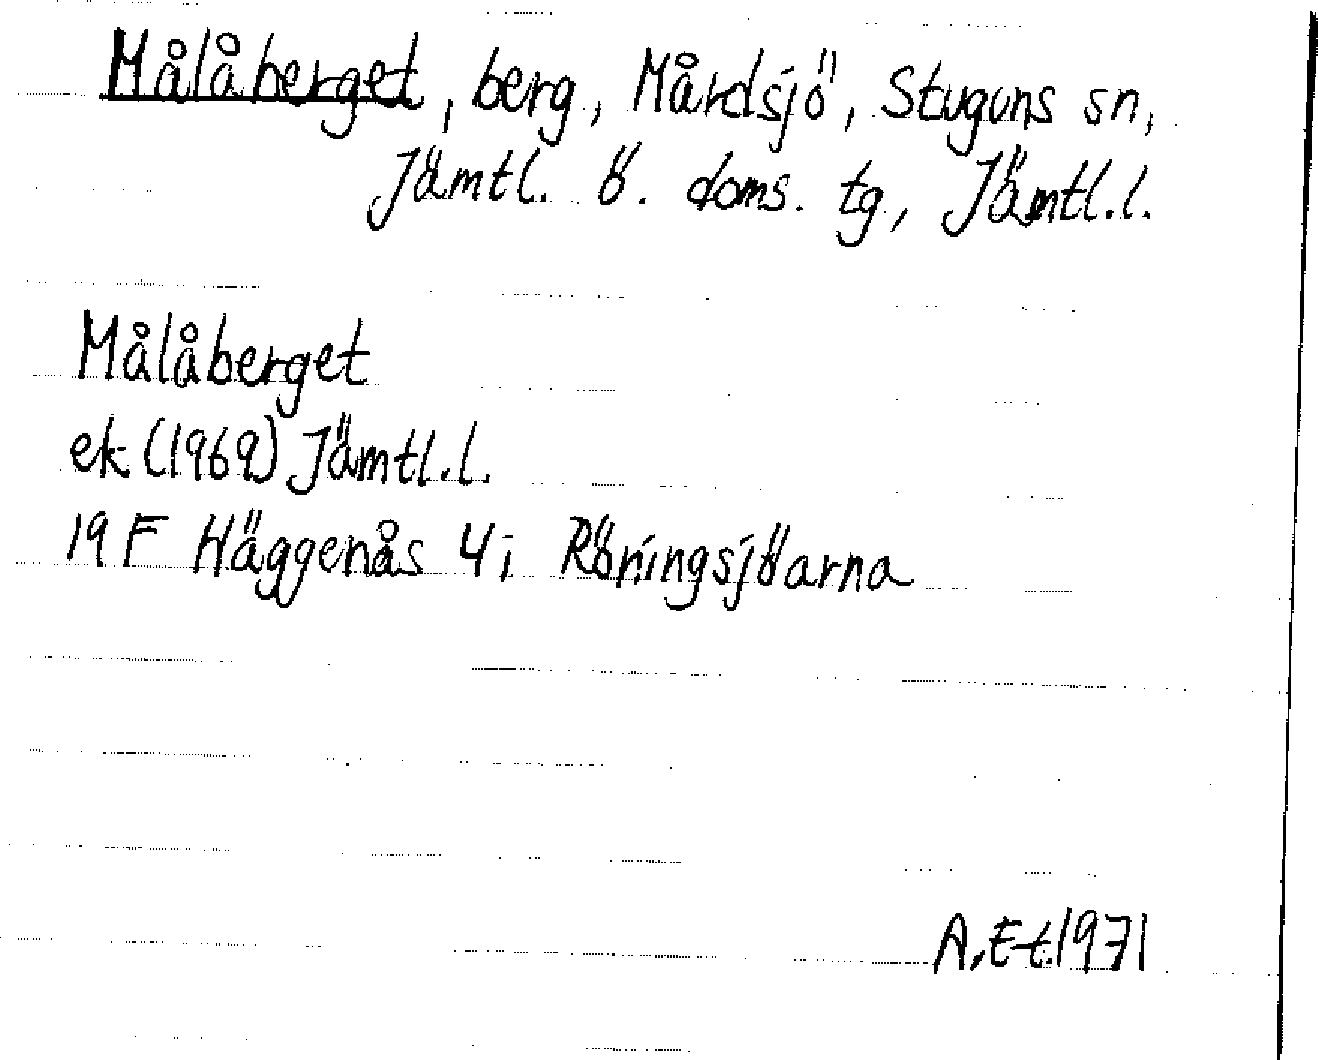 Målåberget, berg, Mårdsjö, Stuguns sn,
Jämtl. ö. doms. tg, Jämtl.l.
Målåberget
ek (1969) Jämtl.l.
19 F Häggenås 4 i Röningsjöarna
A.E-t.1971